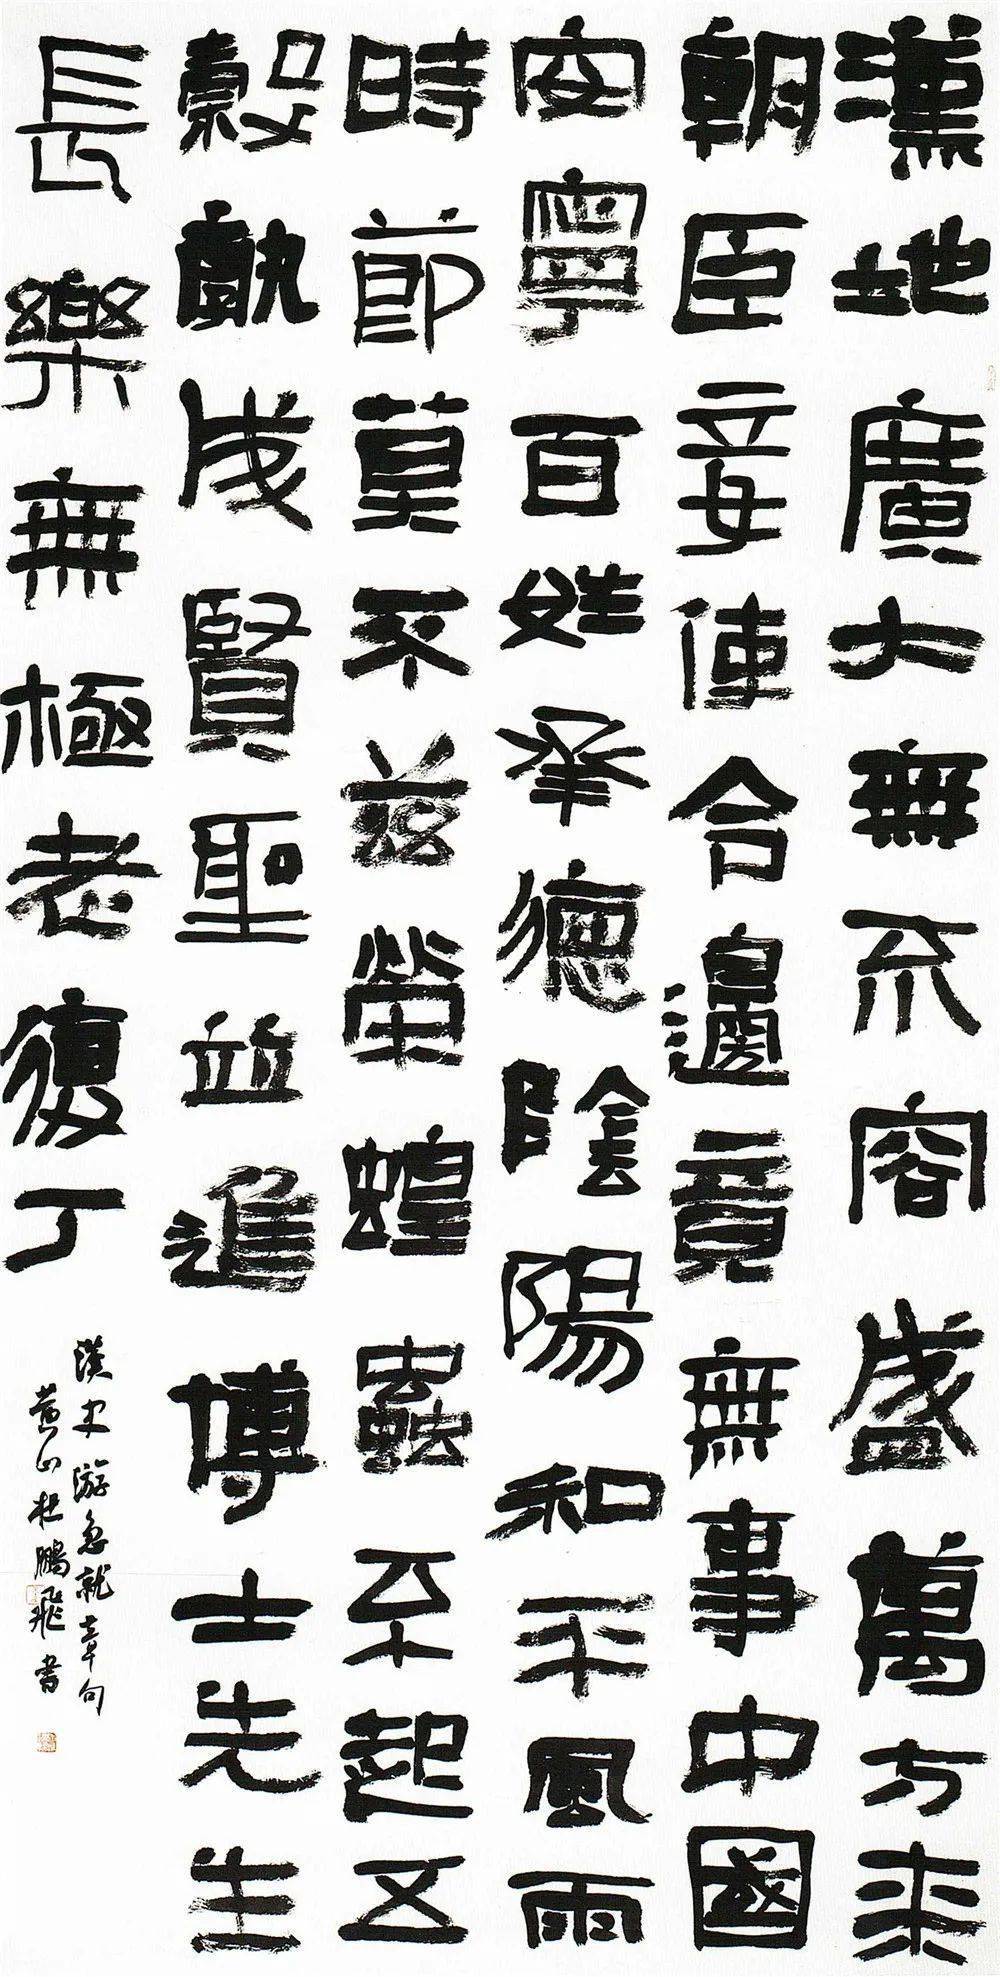 漢地廣大無不容盛萬方来
朝臣妾使合邊竟無事中國
安寧百姓承德陰陽和平風雨
時節莫不茲榮蝗蟲不起五
穀孰成賢聖並進博士先生
長樂無極老復丁
漢史游急就章句
黄山杜鵬飛書